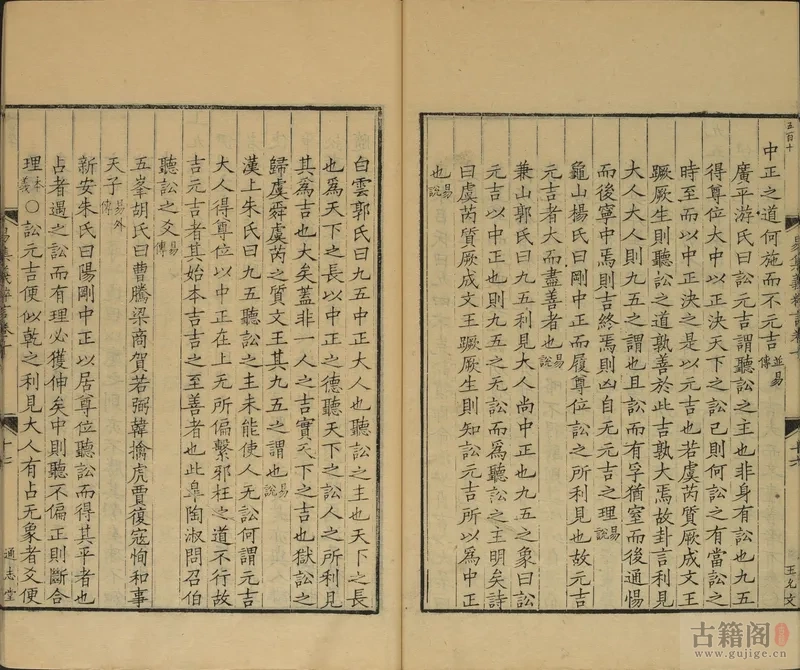 五百十
中正之道何施而不元吉並易傳
廣平游氏曰訟元吉謂聽訟之主也非身有訟也九五
得尊位大中以正決天下之訟己則何訟之有當訟之
時至而以中正決之是以元吉也若虞芮質厥成文王
蹶厥生則聽訟之道孰善於此吉孰大焉故卦言利見
大人大人則九五之謂也且訟而有孚猶窒而後通惕
而後寧中焉則吉終焉則凶自无元吉之理易說
龜山楊氏曰剛中正而履尊位訟之所利見也故元吉
元吉者大而盡善者也易說
兼山郭氏曰九五利見大人尚中正也九五之象曰訟
元吉以中正也則九五之无訟而爲聽訟之王明矣詩
曰虞芮質厥成文王蹶厥生則知訟元吉所以爲中正
也易說
王允文
白雲郭氏曰九五中正大人也聽訟之主也天下之長
也爲天下之長以中正之德聽天下之訟人之所利見
其爲吉也大矣蓋非一人之吉實天下之吉也獄訟之
歸虞舜虞芮之質文王其九五之謂也易說
漢上朱氏曰九五聽訟之主未能使人无訟何謂元吉
大人得尊位以中正在上无所偏繫邪枉之道不行故
吉元吉者其始本吉吉之至善者也此皐陶淑問召伯
聽訟之爻易傳
五峯胡氏曰曹騰梁商賀若弼韓擒虎賈復寇恂和事
天子易外傳
新安朱氏曰陽剛中正以居尊位聽訟而得其平者也
占者遇之訟而有理必獲伸矣中則聽不偏正則斷合
理本義○訟元吉便似乾之利見大人有占无象者爻便
通志堂
古籍阁
www.gujige.cn